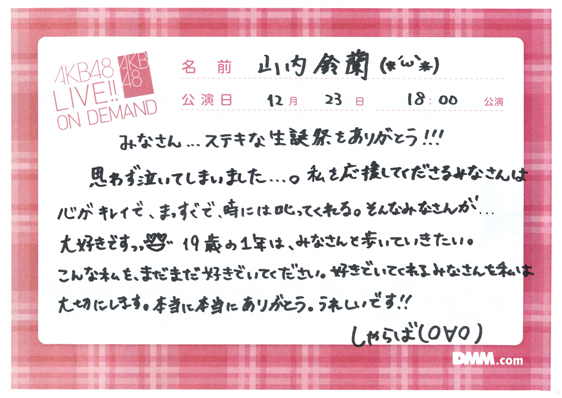 AKB48
LIVE!!
ON DEMAND
AKB
48
名前 山内 鈴蘭 (*´ω`*)
公演日 12月 23日 18:00 公演
みなさん…ステキな生誕祭をありがとう!!!
思わず泣いてしまいました…。私を応援してくださるみなさんは
心がキレイで、まっすぐで、時には叱ってくれる。そんなみなさんが…
大好きですっ 19歳の1年は、みなさんと歩いていきたい。
こんな私を、まだまだ好きでいてください。好きでいてくれるみなさんを私は
大切にします。本当に本当にありがとう。うれしいです!!
しゃらば(O∀O)
DMM.com